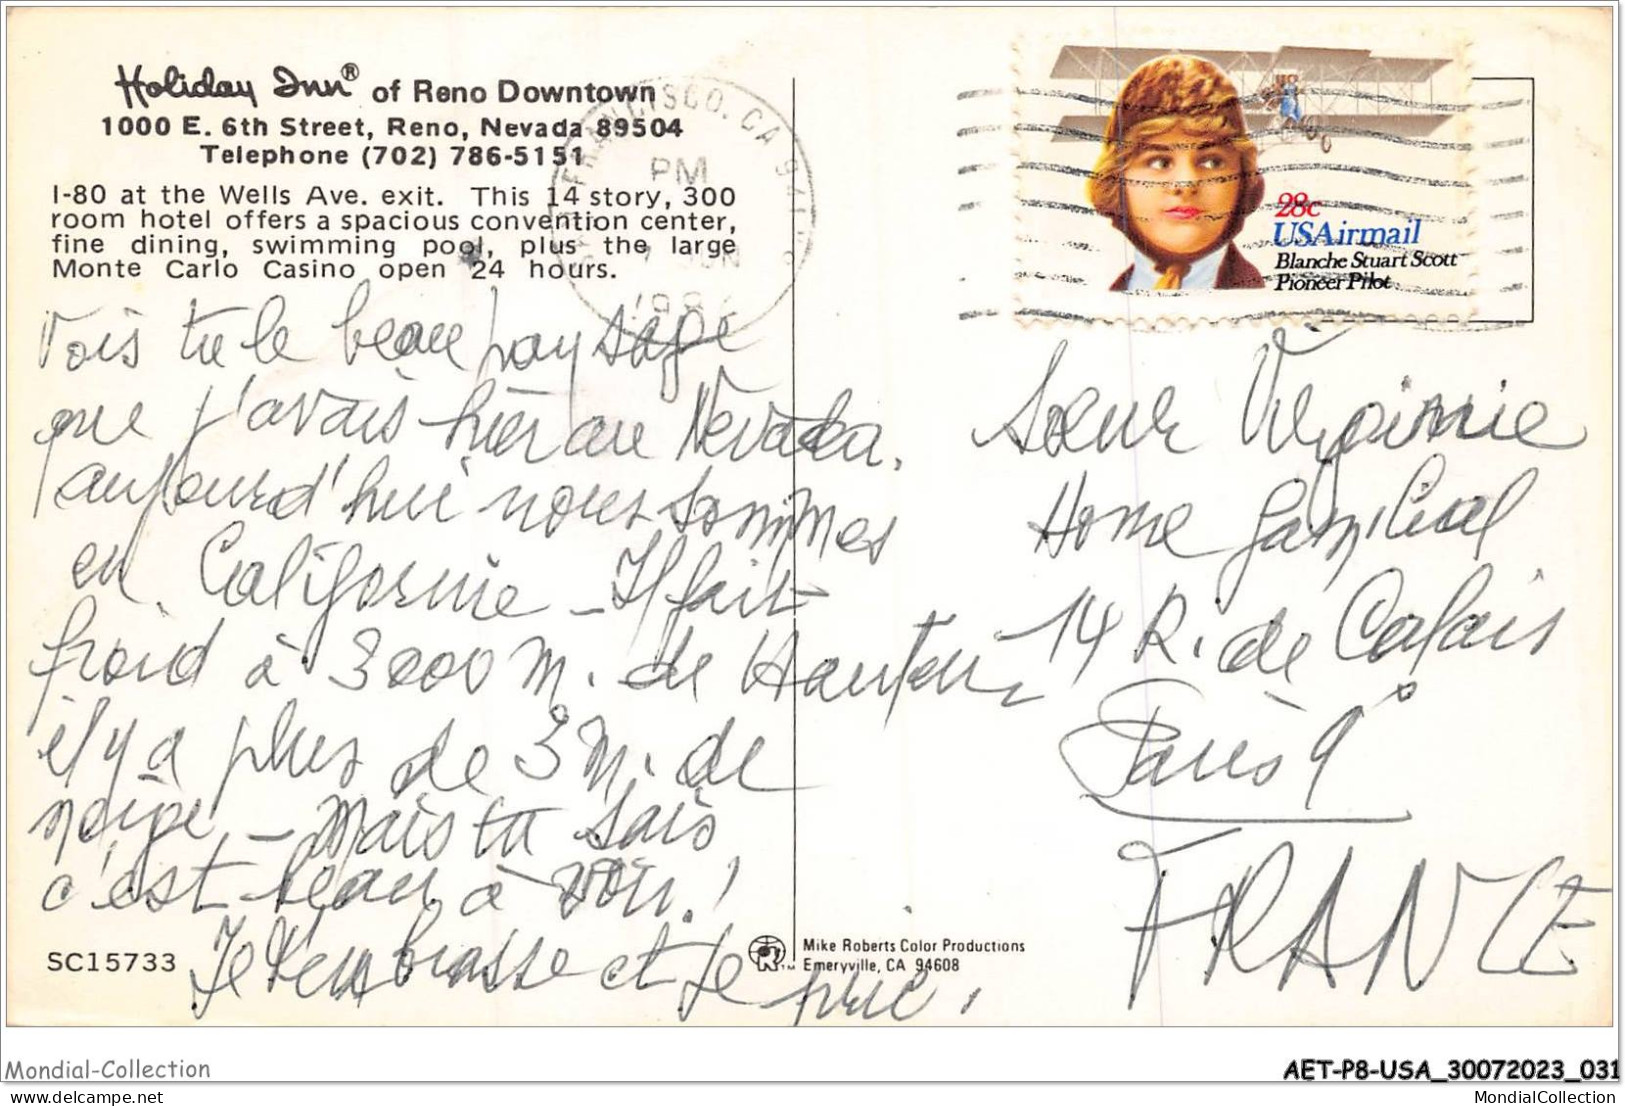 Holiday Inn® of Reno Downtown
1000 E. 6th Street, Reno, Nevada 89504
Telephone (702) 786-5151
I-80 at the Wells Ave. exit. This 14 story, 300
room hotel offers a spacious convention center,
fine dining, swimming pool, plus the large
Monte Carlo Casino open 24 hours.
FRANCISCO, CA
PM
28c
USAirmail
Blanche Stuart Scott
Pioneer Pilot
Vois tu le beau paysage
que j'avais hier au Nevada.
aujourd'hui nous sommes
en Californie - Il fait
froid à 3000 m. de Hauteur
il y a plus de 3 m. de
neige - mais tu sais
c'est beau à voir !
Je t'embrasse et je prie.
Soeur Virginie
Home familial
14 R. de Calais
Paris 9°
FRANCE
SC15733
Mike Roberts Color Productions
Emeryville, CA 94608
Mondial-Collection
AET-P8-USA_30072023_031
www.delcampe.net
MondialCollection